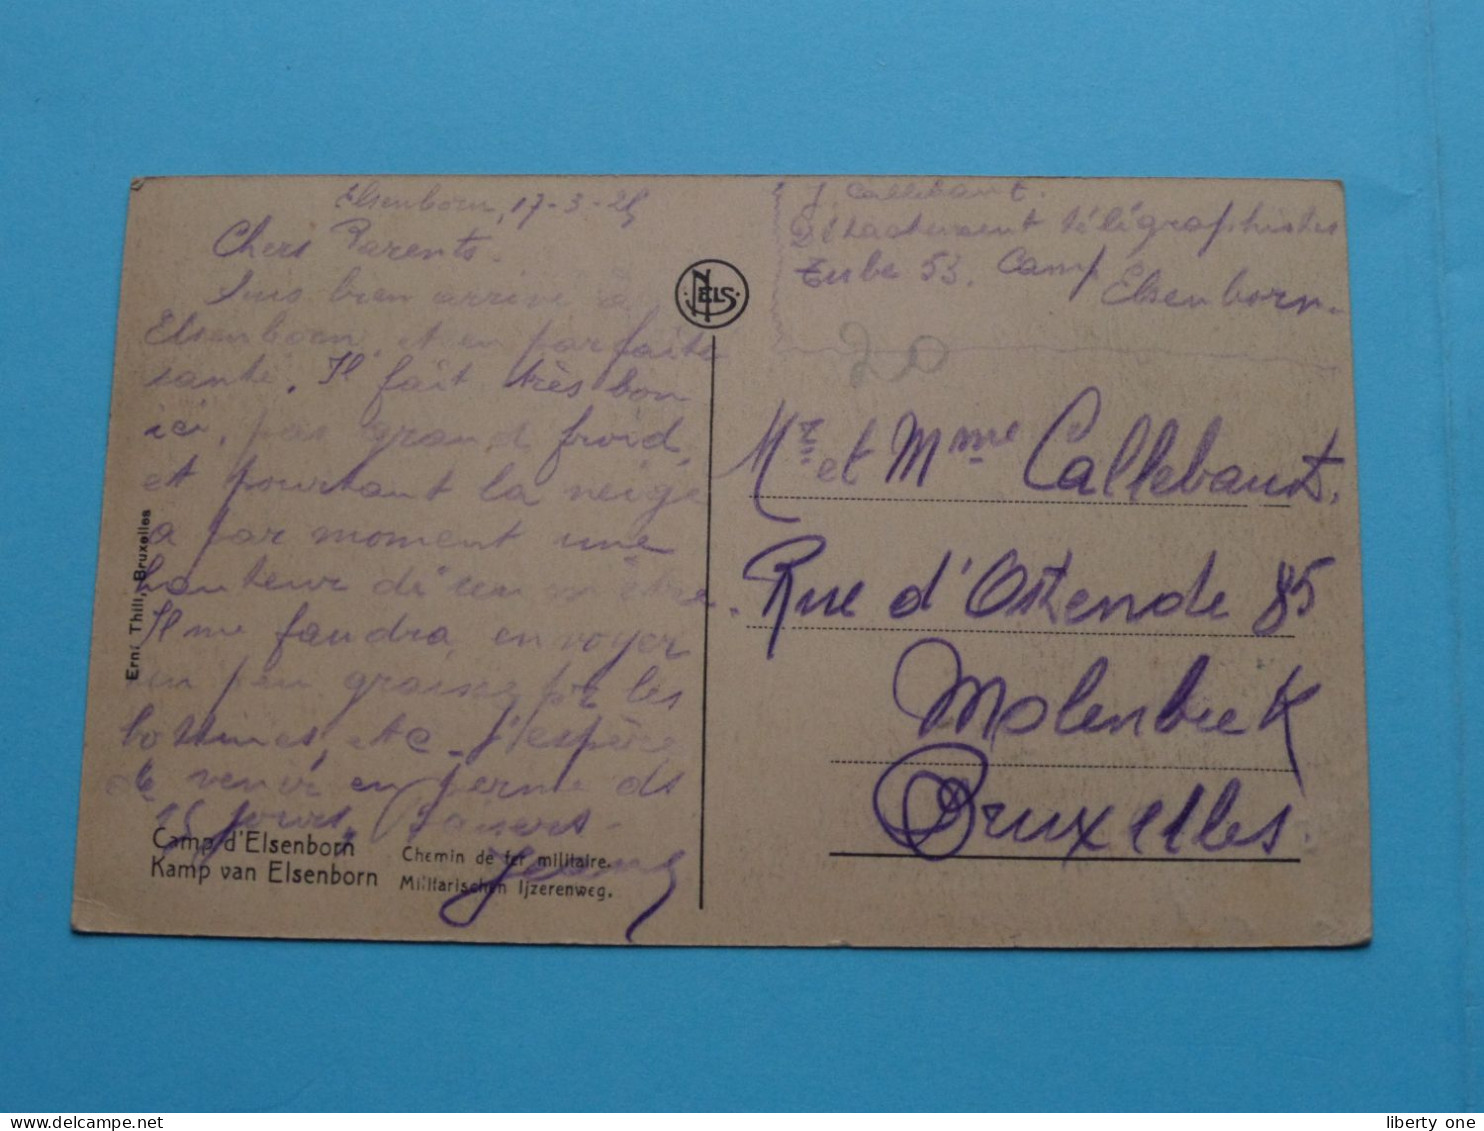 Elsenborn, 17-3-25
Chers Parents.
Suis bien arrivé à
Elsenborn, et en parfaite
santé. Il fait très bon
ici, pas grand froid,
et pourtant la neige
a par moment une
hauteur d'un mètre.
Il me faudra envoyer
un peu graisse pr les
bottines, etc. J'espère
de venir en perme ds
15 jours,
Camp d'Elsenborn
Kamp van Elsenborn
Chemin de fer militaire.
Militarischen Ijzerenweg.
Ern. Thill, Bruxelles
NELS
J. Callebaut.
Détachement télégraphistes
53. Camp
Elsenborn.
20
Mr et Mme Callebaut.
Rue d'Ostende 85
Molenbeek
Bruxelles.
liberty one